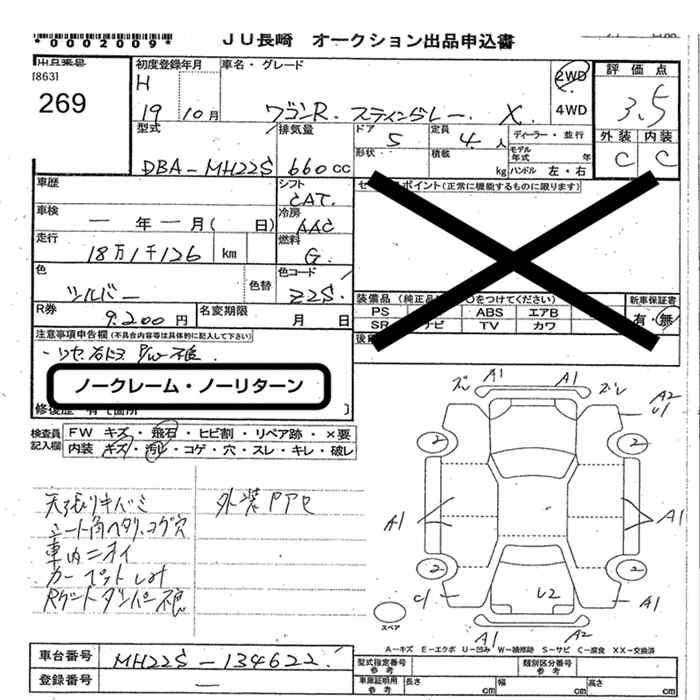 *0002009* JU長崎 オークション出品申込書
出品番号
[863]
269
初度登録年月
H
19 10月
車名・グレード
ワゴンR. スティングレー X.
2WD
4WD
評価点
3.5
外装 内装
C C
型式
DBA-MH22S
排気量
660cc
ドア 5 定員 4. 人
形状 積載 kg
ディーラー・並行
モデル年式 年
ハンドル 左・右
車歴
シフト CAT.
車検 年 月( 日)
冷房 AAC
走行 18万1千126 km
燃料 G.
色 シルバー
色替
色コード Z2S.
R券 9.200円
名変期限 月 日
ポイント(正常に機能するものに限ります)
装備品(純正品 をつけてください)
PS ABS エアB
SR ナビ TV カワ
新車保証書
有・無
注意事項申告欄(不具合内容等は具体的に記入して下さい)
ノークレーム・ノーリターン
修復歴 有(箇所 )
検査員記入欄
FW キズ・飛石・ヒビ割・リペア跡・×要
内装 キズ・汚レ・コゲ・穴・スレ・キレ・破レ
天張りキバミ
シート角ヘタリ、コゲ穴
車内ニオイ
外装
ズレ A1 A1 ズレ
A2
U1
2 2
A1 A1
2 2
C1 U2 A1
A1 A2
スペア
A-キズ E-エクボ U-凹み W-補修跡 S-サビ C-腐食 XX-交換済
車台番号 MH22S-134622.
登録番号 —
型式指定番号 参考
類別区分番号 参考
車庫証明用 参考 長さ cm 幅 cm 高さ cm